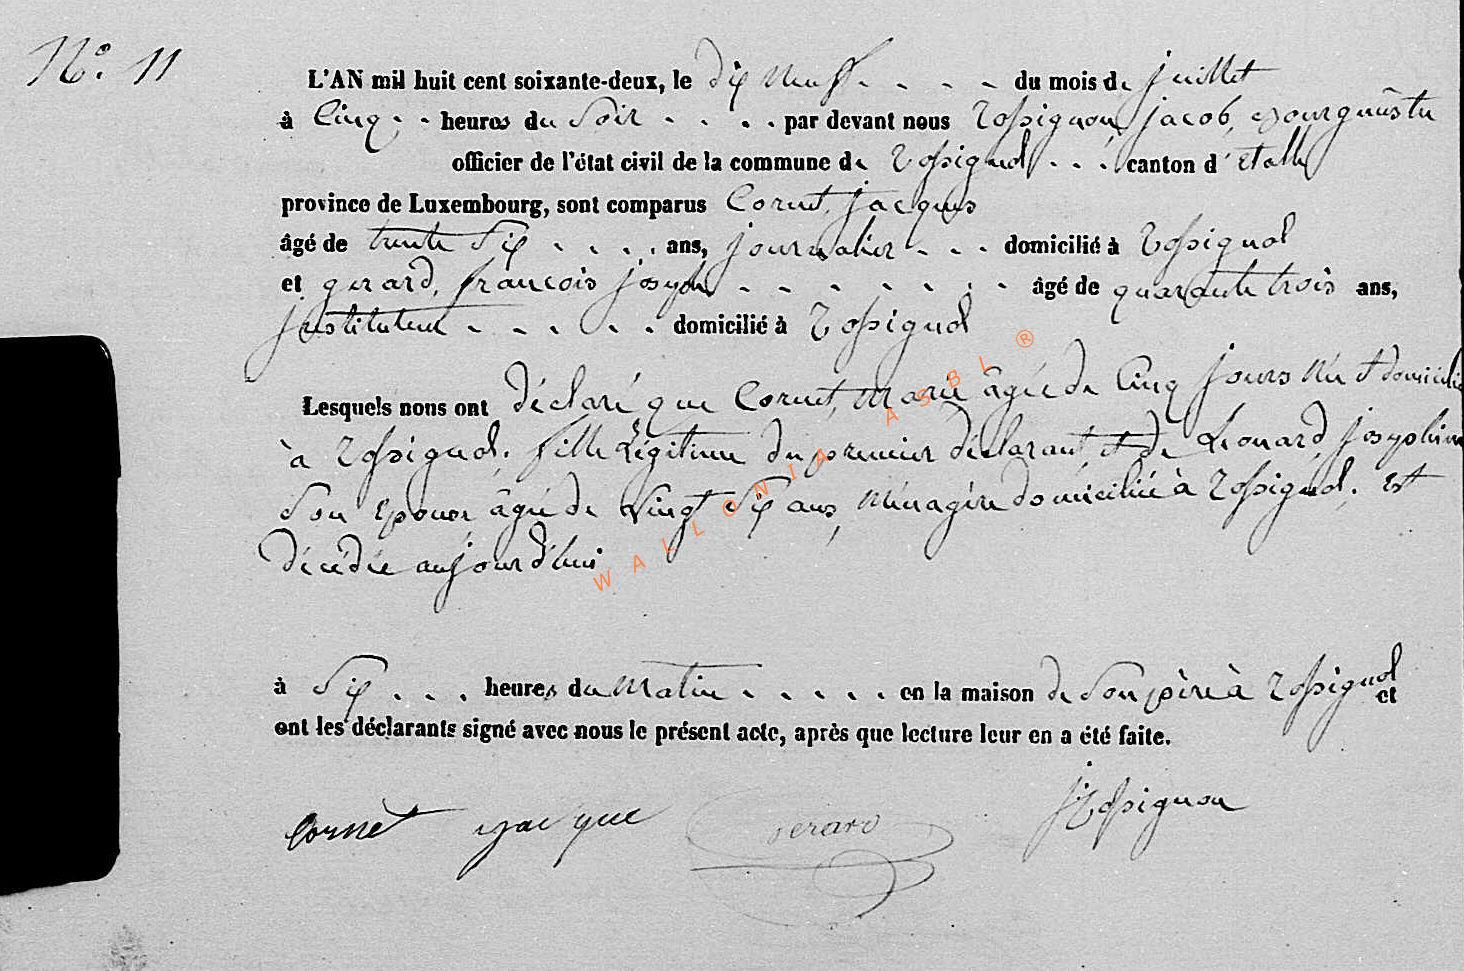 N° 11
L'AN mil huit cent soixante-deux, le dix neuf - - - - du mois de juillet
à Cinq - - heures du Soir - - - - par devant nous Rossignon, jacob, Bourguéstre
officier de l'état civil de la commune de Rossignol - - - canton d'Etalle
province de Luxembourg, sont comparus Cornet, jacques
âgé de trente Six - - - - ans, journalier - - - domicilié à Rossignol
et gerard, francois joseph - - - - - - - âgé de quarante trois ans,
Instituteur - - - - - domicilié à Rossignol
Lesquels nous ont déclaré que Cornet, Marie âgée de Cinq jours Née et domiciliée
à Rossignol, fille Légitime du premier déclarant, et de Léonard, josephine
Son Epouse, âgée de Vingt Six ans, Ménagère domiciliée à Rossignol. Est
Décédée aujourd'hui
à Six - - - heures du Matin - - - - - en la maison de Son père à Rossignol et
ont les déclarants signé avec nous le présent acte, après que lecture leur en a été faite.
Cornet jacque Gerard J Rossignon
WALLONIA ASBL ®